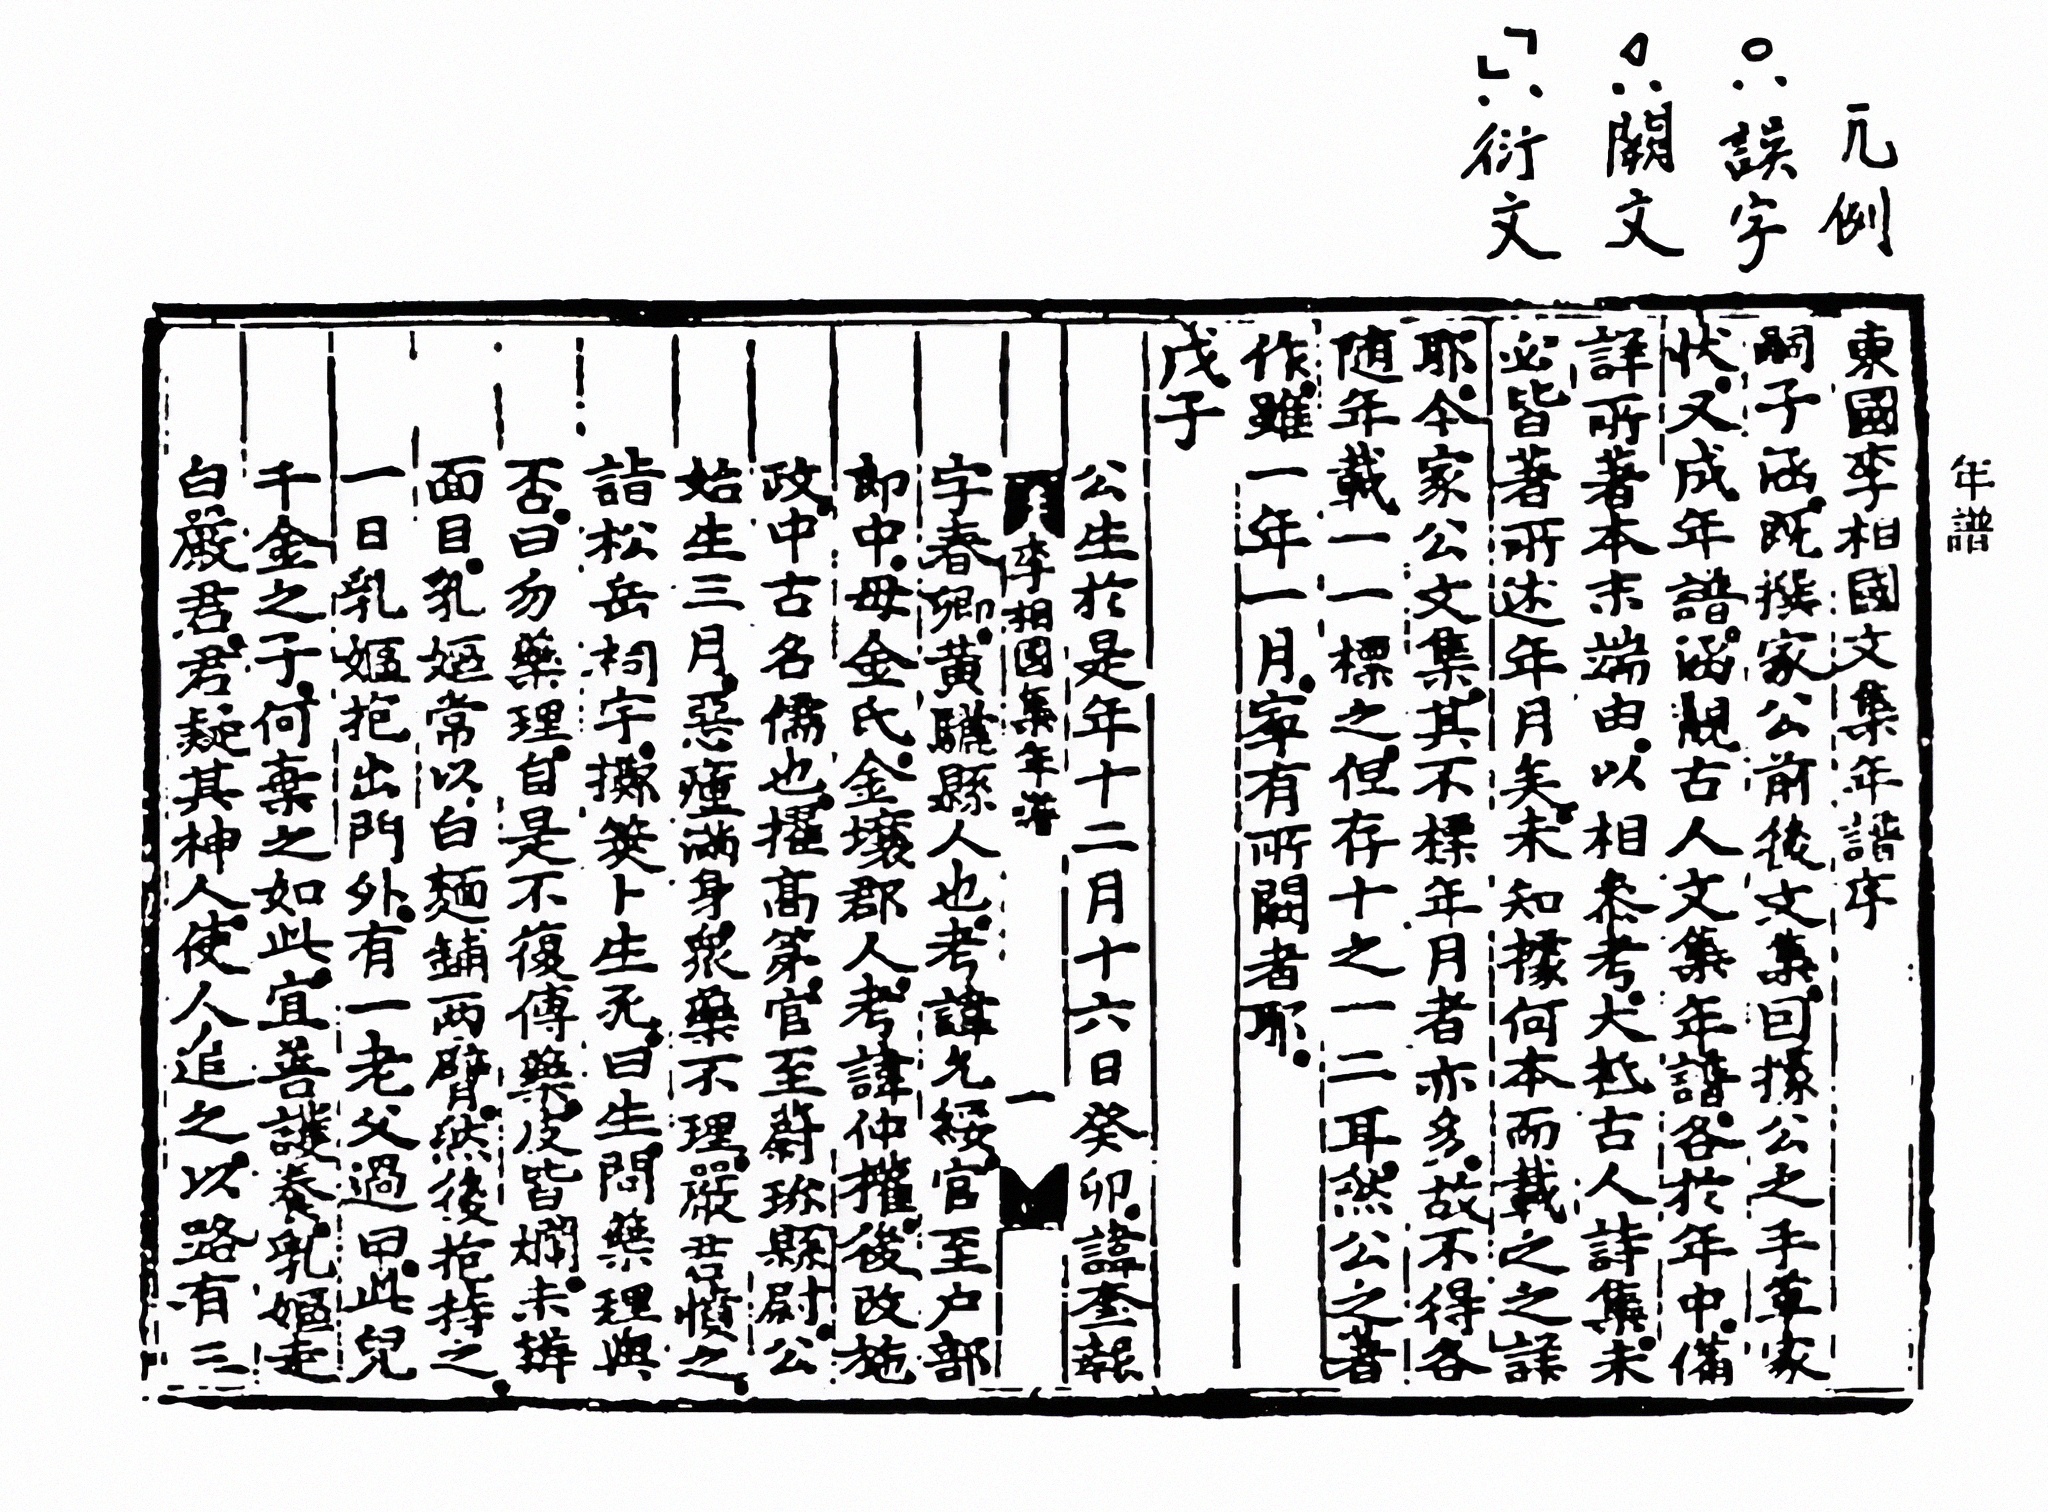 凡例
○∴誤字
◊∴闕文
「」∴衍文
年譜
東國李相國文集年譜序
嗣子涵。既撰家公前後文集。因據公之手草家
狀。又成年譜。涵觀古人文集年譜。各於年中。備
詳所著本末端由。以相叅考。大抵古人詩集。未
必皆著所述年月矣。未知據何本而載之之詳
耶。今家公文集。其不標年月者亦多。故不得各
随年載一一標之。但存十之一二耳。然公之著
作。雖一年一月。寧有所闕者耶。
戊子
公生於是年十二月十六日癸卯。諱奎報
李相國集年譜 一
字春卿。黃驪縣人也。考諱允綏。官至户部
郎中。母金氏。金壤郡人。考諱仲權。後改施
政。中古名儒也。擢高第。官至蔚珎縣尉。公
始生三月。惡瘇滿身。衆藥不理。嚴君憤之。
詣松岳祠宇。擲筊卜生死。曰生。問藥理與
否。曰勿藥理。自是不復傅藥。皮皆爛。未辨
面目。乳嫗常以白麵鋪兩臂。然後抱持之。
一日乳嫗抱出門外。有一老父過甲。此兒
千金之子。何棄之如此。宜善護養。乳嫗走
白嚴君。君疑其神人。使人追之。以路有三